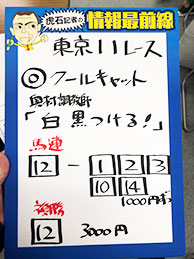 虎石記者の
情報最前線
東京11レース
◎クールキャット
奥村調教師
「白黒つける!」
馬連
12 - 1 2 3
10 14
1000円ずつ
複勝
12 3000円